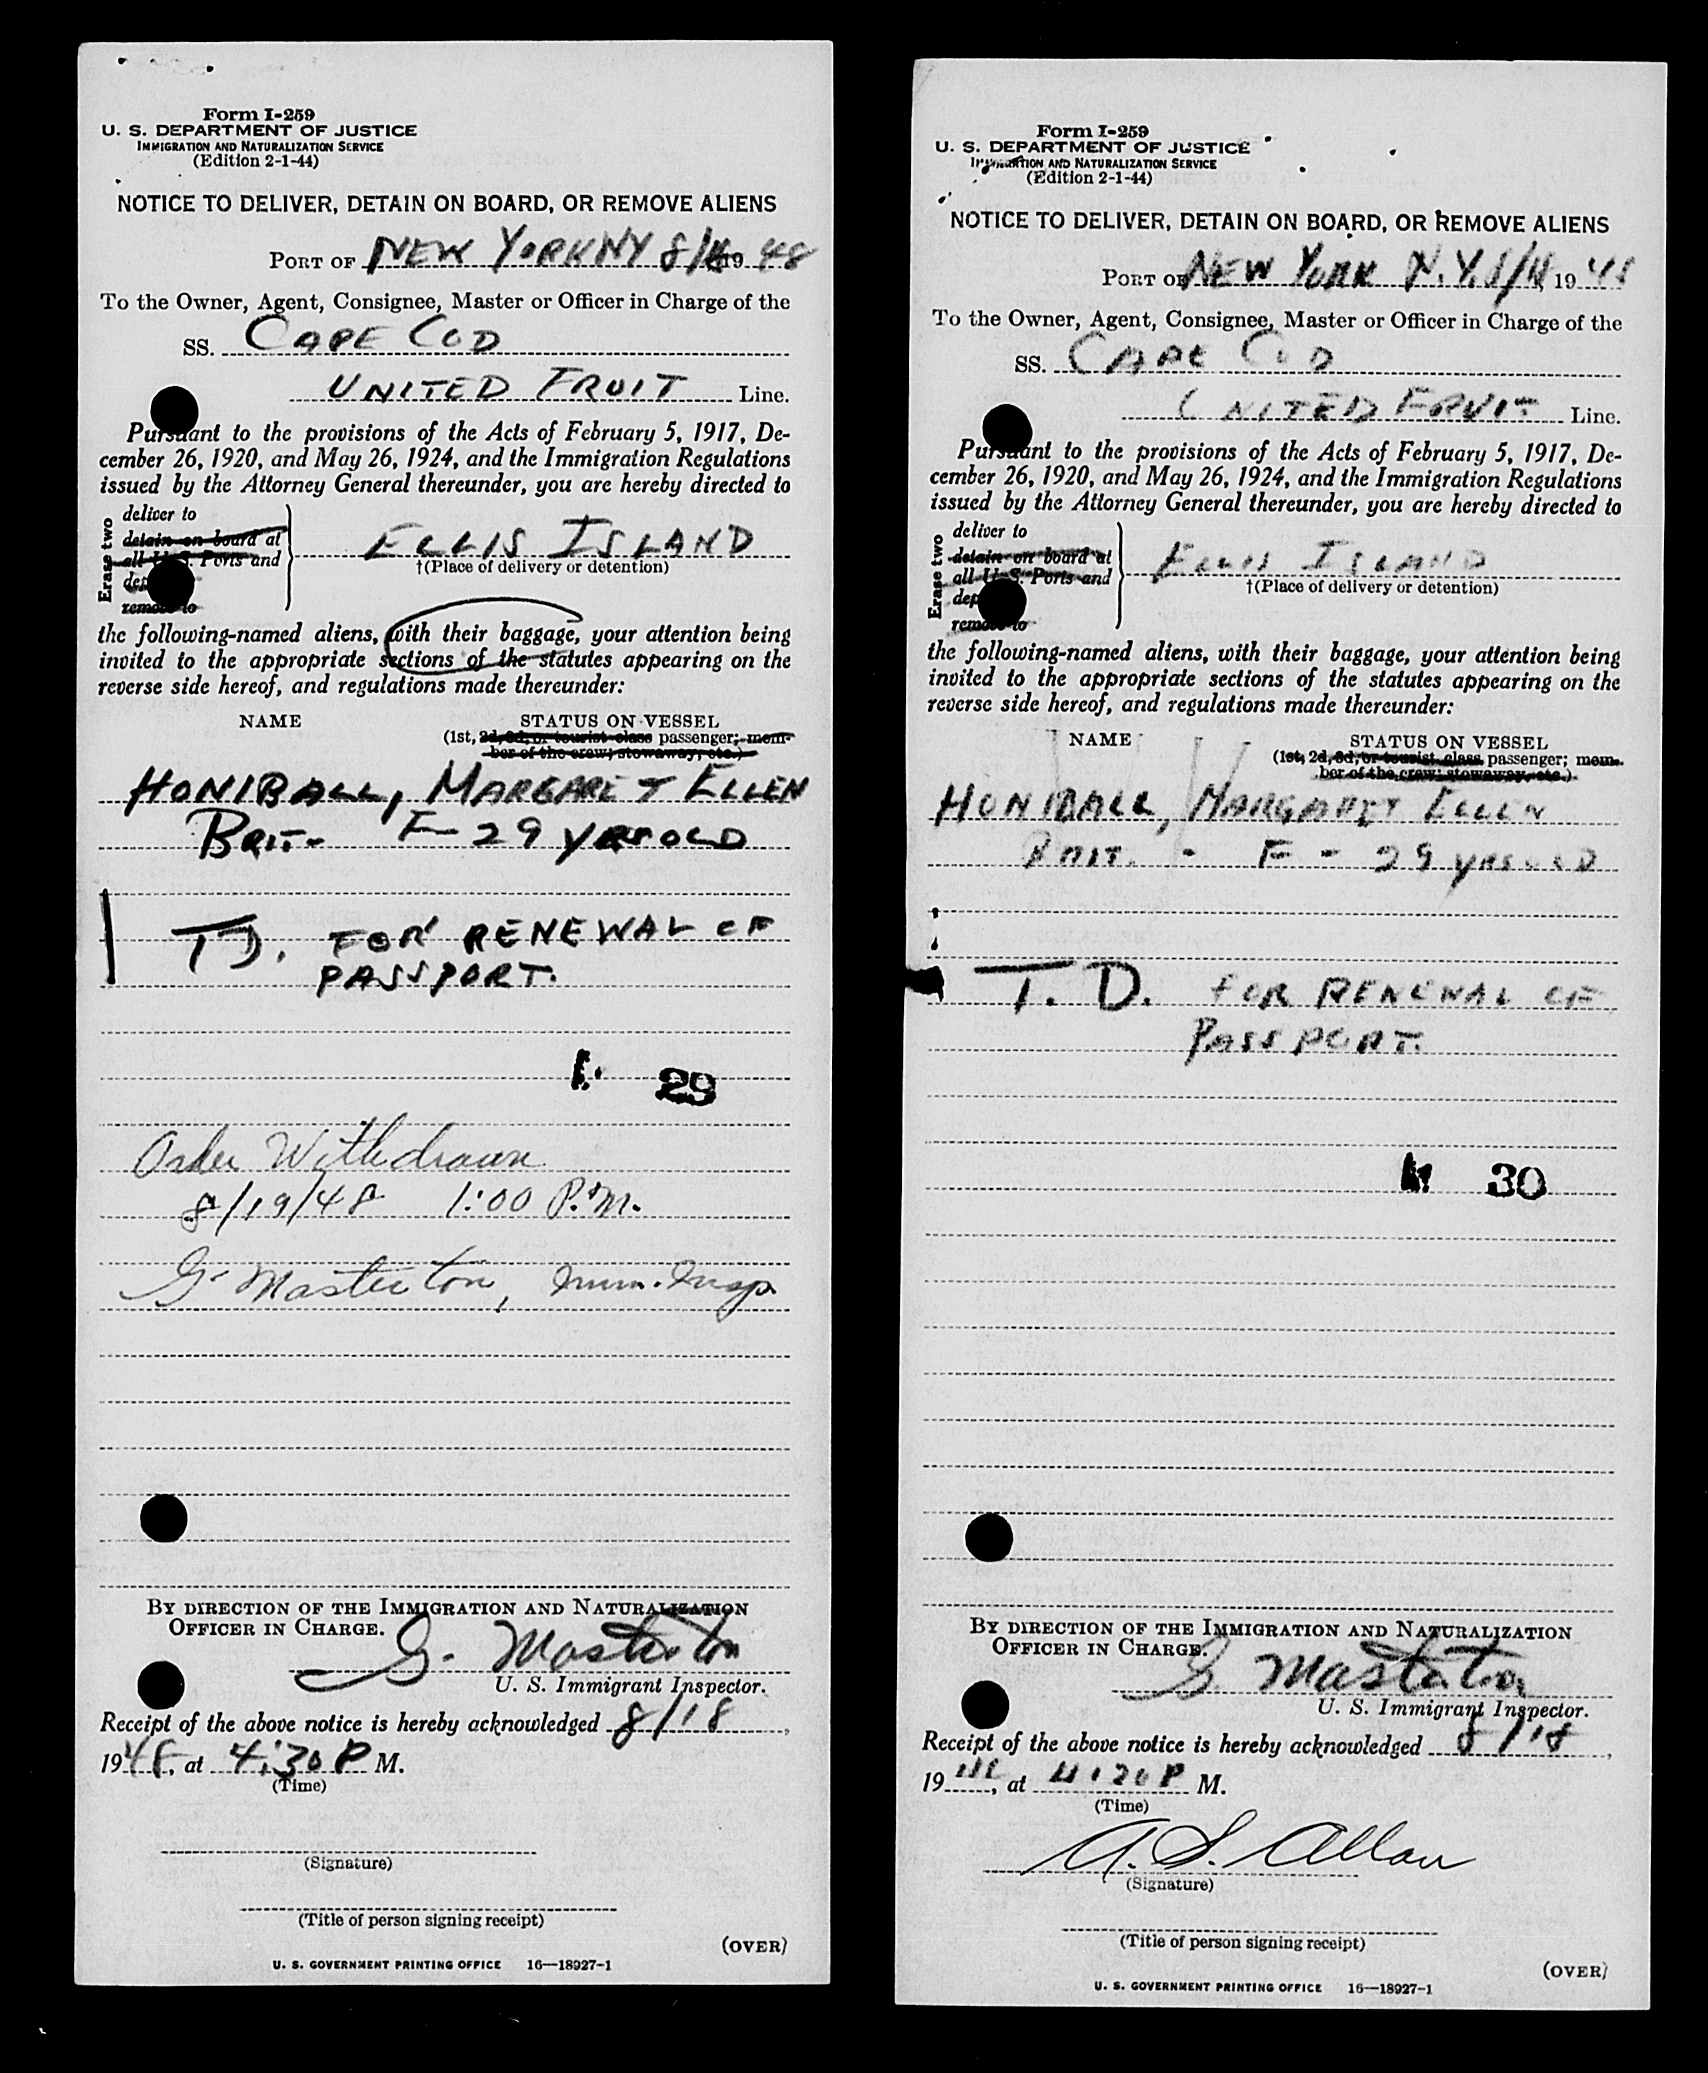 Form I-259
U. S. DEPARTMENT OF JUSTICE
IMMIGRATION AND NATURALIZATION SERVICE
(Edition 2-1-44)
NOTICE TO DELIVER, DETAIN ON BOARD, OR REMOVE ALIENS
PORT OF NEW YORK NY 8/18 19 48
To the Owner, Agent, Consignee, Master or Officer in Charge of the
SS. CAPE COD
UNITED FRUIT Line.
Pursuant to the provisions of the Acts of February 5, 1917, De-
cember 26, 1920, and May 26, 1924, and the Immigration Regulations
issued by the Attorney General thereunder, you are hereby directed to
Erase two
deliver to
detain on board at
all U. S. Ports and
remove to
ELLIS ISLAND
†(Place of delivery or detention)
the following-named aliens, with their baggage, your attention being
invited to the appropriate sections of the statutes appearing on the
reverse side hereof, and regulations made thereunder:
NAME STATUS ON VESSEL
(1st, 2d, 3d, or tourist class passenger; mem-
ber of the crew; stowaway, etc.)
HONIBALL, MARGARET ELLEN
BRIT.- F- 29 YRS OLD
T.D. FOR RENEWAL OF
PASSPORT.
29
Order Withdrawn
8/19/48 1:00 P.M.
G. Masterton, Imm. Insp.
BY DIRECTION OF THE IMMIGRATION AND NATURALIZATION
OFFICER IN CHARGE.
G. Masterton
U. S. Immigrant Inspector.
Receipt of the above notice is hereby acknowledged 8/18,
1948, at 4:30 P M.
(Time)
(Signature)
(Title of person signing receipt)
(OVER)
U. S. GOVERNMENT PRINTING OFFICE 16—18927-1
Form I-259
U. S. DEPARTMENT OF JUSTICE
IMMIGRATION AND NATURALIZATION SERVICE
(Edition 2-1-44)
NOTICE TO DELIVER, DETAIN ON BOARD, OR REMOVE ALIENS
PORT OF NEW YORK N.Y. 8/18, 19 48
To the Owner, Agent, Consignee, Master or Officer in Charge of the
SS. CAPE COD
UNITED FRUIT Line.
Pursuant to the provisions of the Acts of February 5, 1917, De-
cember 26, 1920, and May 26, 1924, and the Immigration Regulations
issued by the Attorney General thereunder, you are hereby directed to
Erase two
deliver to
detain on board at
all U. S. Ports and
remove to
ELLIS ISLAND
†(Place of delivery or detention)
the following-named aliens, with their baggage, your attention being
invited to the appropriate sections of the statutes appearing on the
reverse side hereof, and regulations made thereunder:
NAME STATUS ON VESSEL
(1st, 2d, 3d, or tourist class passenger; mem-
ber of the crew; stowaway, etc.)
HONIBALL, MARGARET ELLEN
BRIT. - F - 29 YRS OLD
T. D. FOR RENEWAL OF
PASSPORT.
30
BY DIRECTION OF THE IMMIGRATION AND NATURALIZATION
OFFICER IN CHARGE.
G. Masterton
U. S. Immigrant Inspector.
Receipt of the above notice is hereby acknowledged 8/18,
1948, at 4:30 P M.
(Time)
A. S. Allan
(Signature)
(Title of person signing receipt)
(OVER)
U. S. GOVERNMENT PRINTING OFFICE 16—18927-1